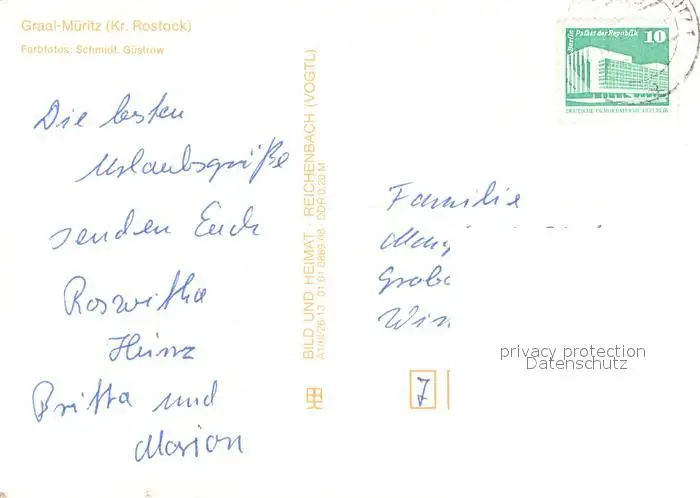 Graal-Müritz (Kr. Rostock)
Farbfotos: Schmidt, Güstrow
Die besten
Urlaubsgrüße
senden Euch
Roswitha
Heinz
Britta und
Marion
BILD UND HEIMAT · REICHENBACH (VOGTL)
DDR 0,20 M
Berlin Palast der Republik
10
DEUTSCHE DEMOKRATISCHE REPUBLIK
Familie
7
privacy protection
Datenschutz